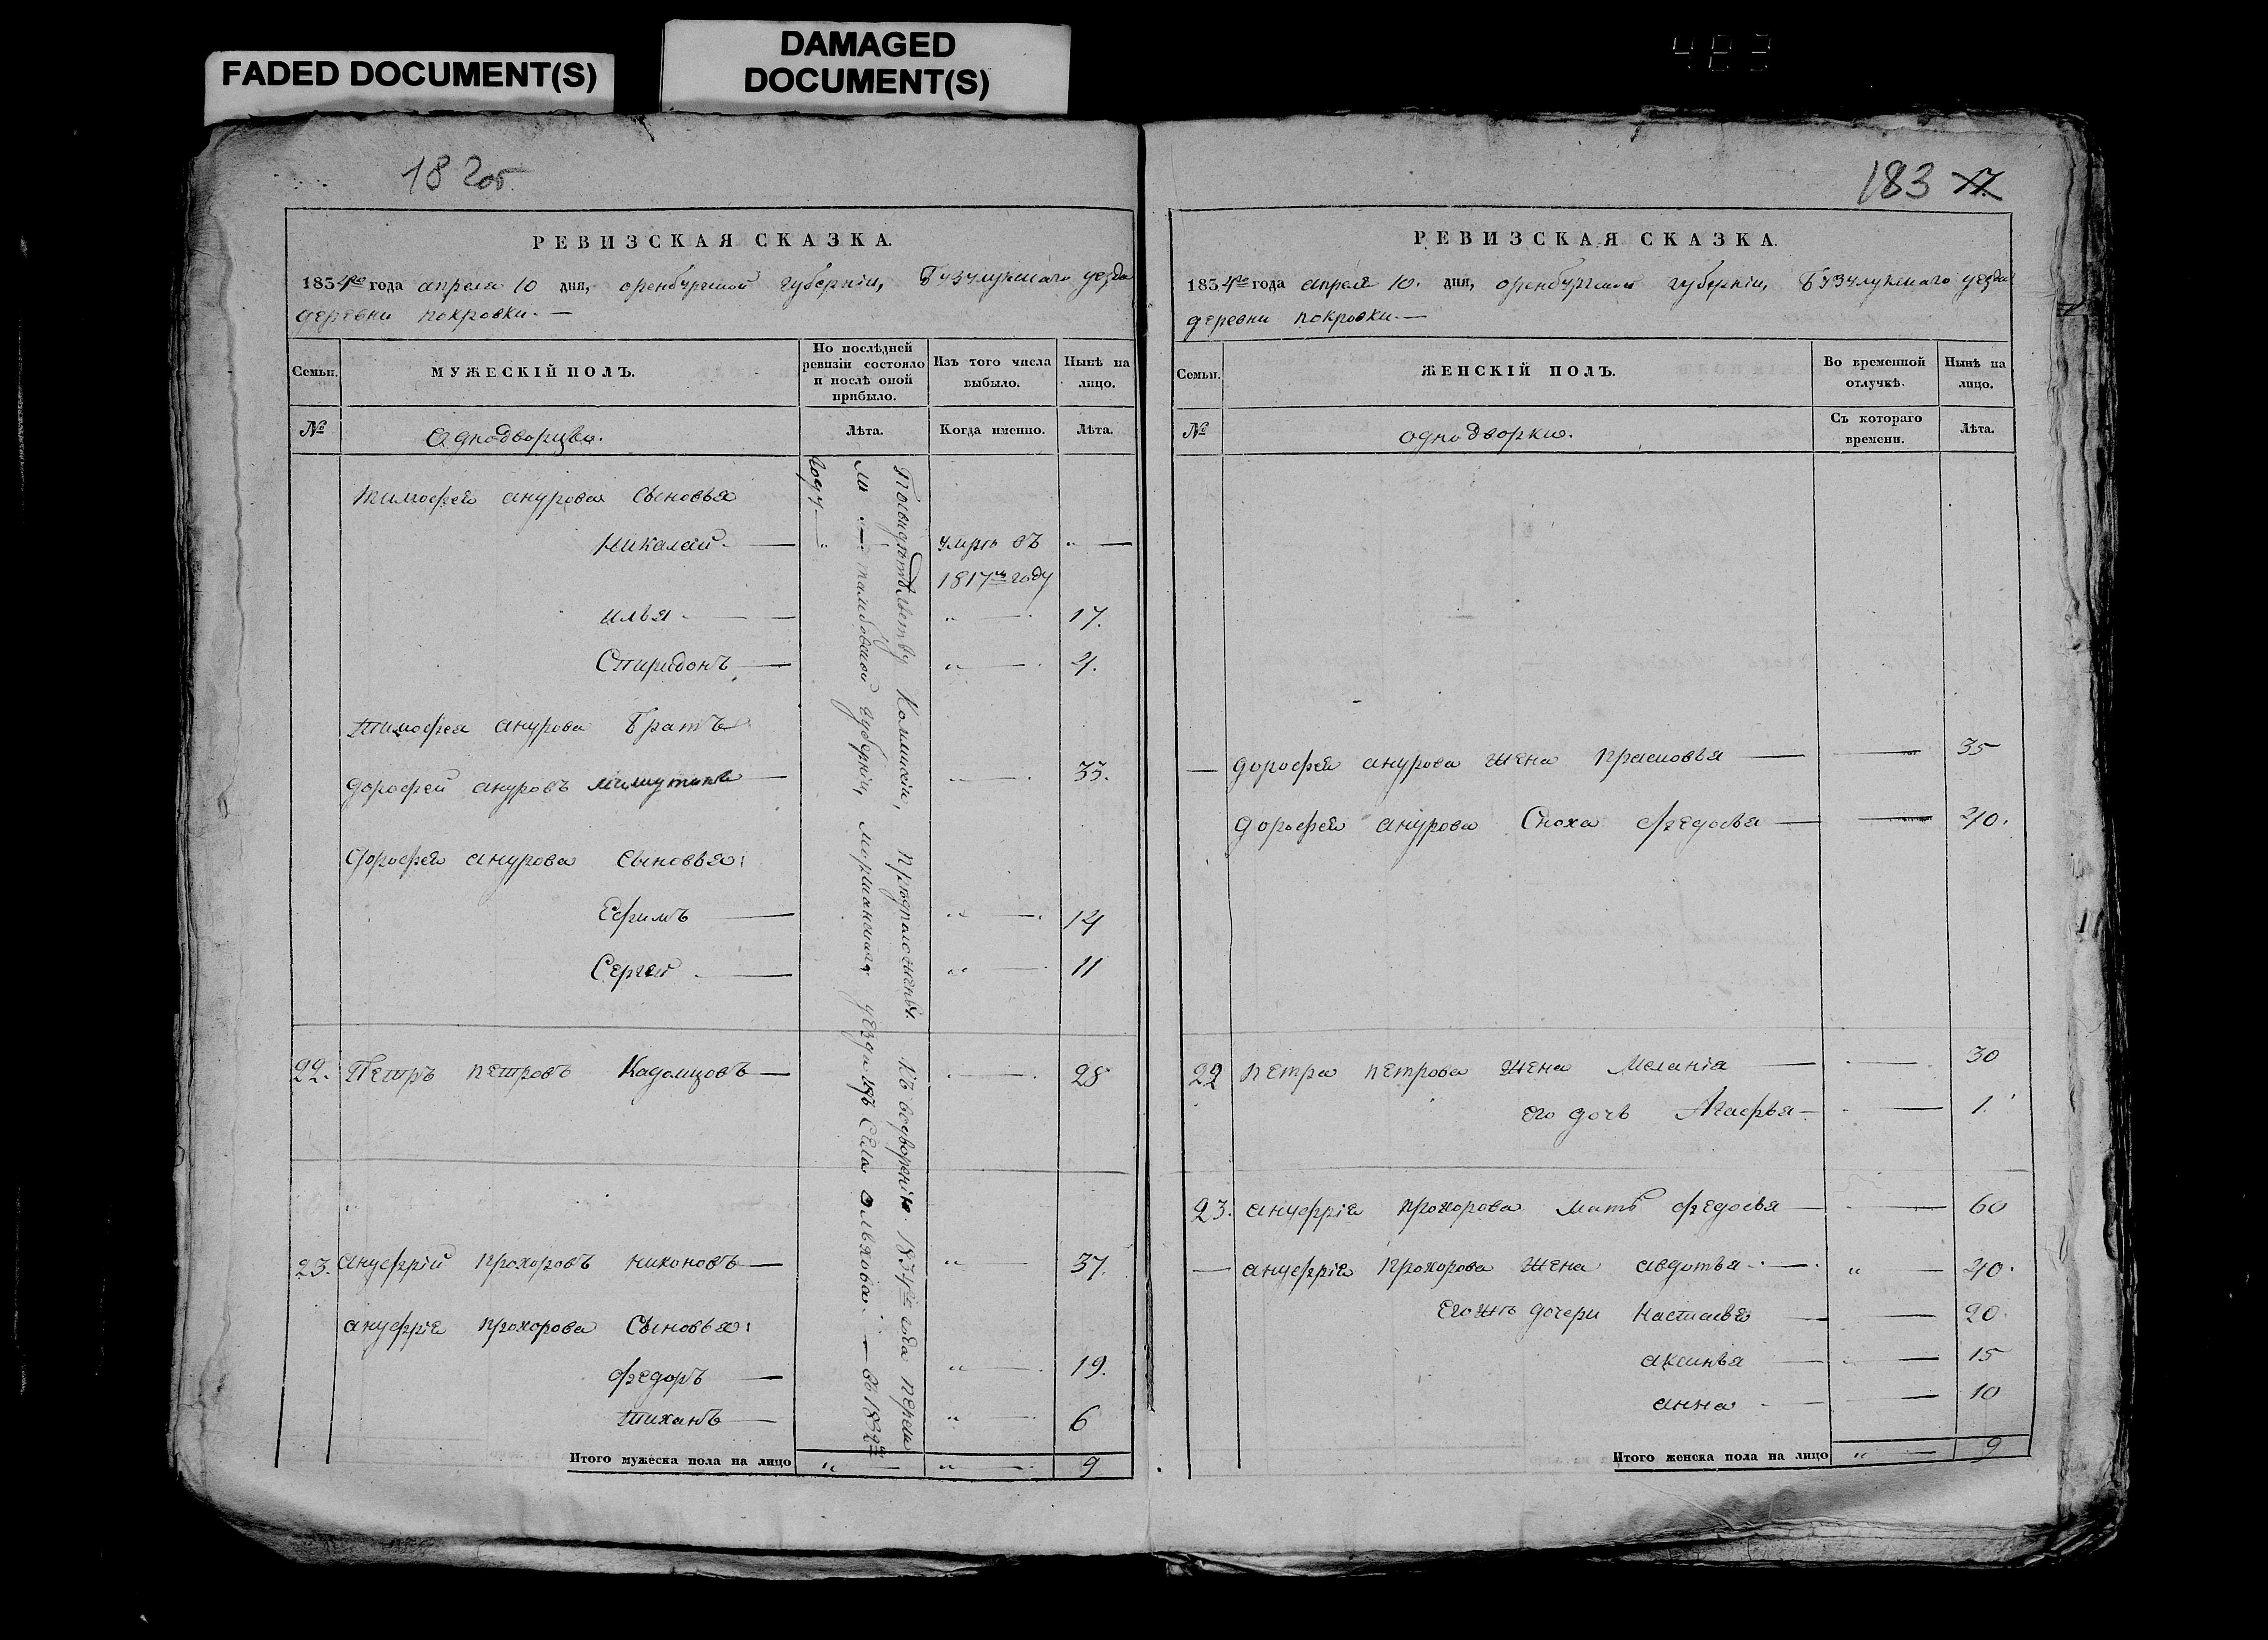 FADED DOCUMENT(S)
DAMAGED
DOCUMENT(S)
182об.
РЕВИЗСКАЯ СКАЗКА.
1834го года апреля 10 дня, оренбургской губерніи, Бузулукскаго уезда
деревни покровки.
Семьи.
МУЖЕСКІЙ ПОЛЪ.
По послѣдней
ревизіи состояло
и послѣ оной
прибыло.
Изъ того числа
выбыло.
Нынѣ на
лицо.
№
Однодворцы.
Лѣта.
Когда именно.
Лѣта.
Тимофея анурова сыновья
Николай умре въ
1817м году
илья 17.
Спиридонъ 4.
Тимофея анурова Братъ
дорофей ануровъ 33.
дорофея анурова сыновья:
Ефимъ 14
Сергей 11
22. Петръ петровъ Кадомцовъ 28
23. ануфрій прохоровъ никоновъ 37.
ануфрія прохорова Сыновья:
федоръ 19.
тиханъ 6
Итого мужеска пола на лицо 9
По Коммисіи, къ водворенію 1834го года пере
ли тамбовской губерніи, моршанскаго уезда изъ села въ 1832м
году
183 17.
РЕВИЗСКАЯ СКАЗКА.
1834го года апреля 10. дня, оренбургской губерніи, Бузулукскаго уезда
деревни покровки.
Семьи.
ЖЕНСКІЙ ПОЛЪ.
Во временной
отлучкѣ.
Нынѣ на
лицо.
№
однодворки.
Съ котораго
времени.
Лѣта.
дорофея анурова жена прасковья 35
дорофея анурова Сноха федосья 40.
22 петра петрова жена Меланія 30
его дочь Агафья 1.
23. ануфрія прохорова мать федосья 60
ануфрія прохорова жена авдотья 40.
его жъ дочери Настасья 20.
аксинья 15
анна 10
Итого женска пола на лицо 9